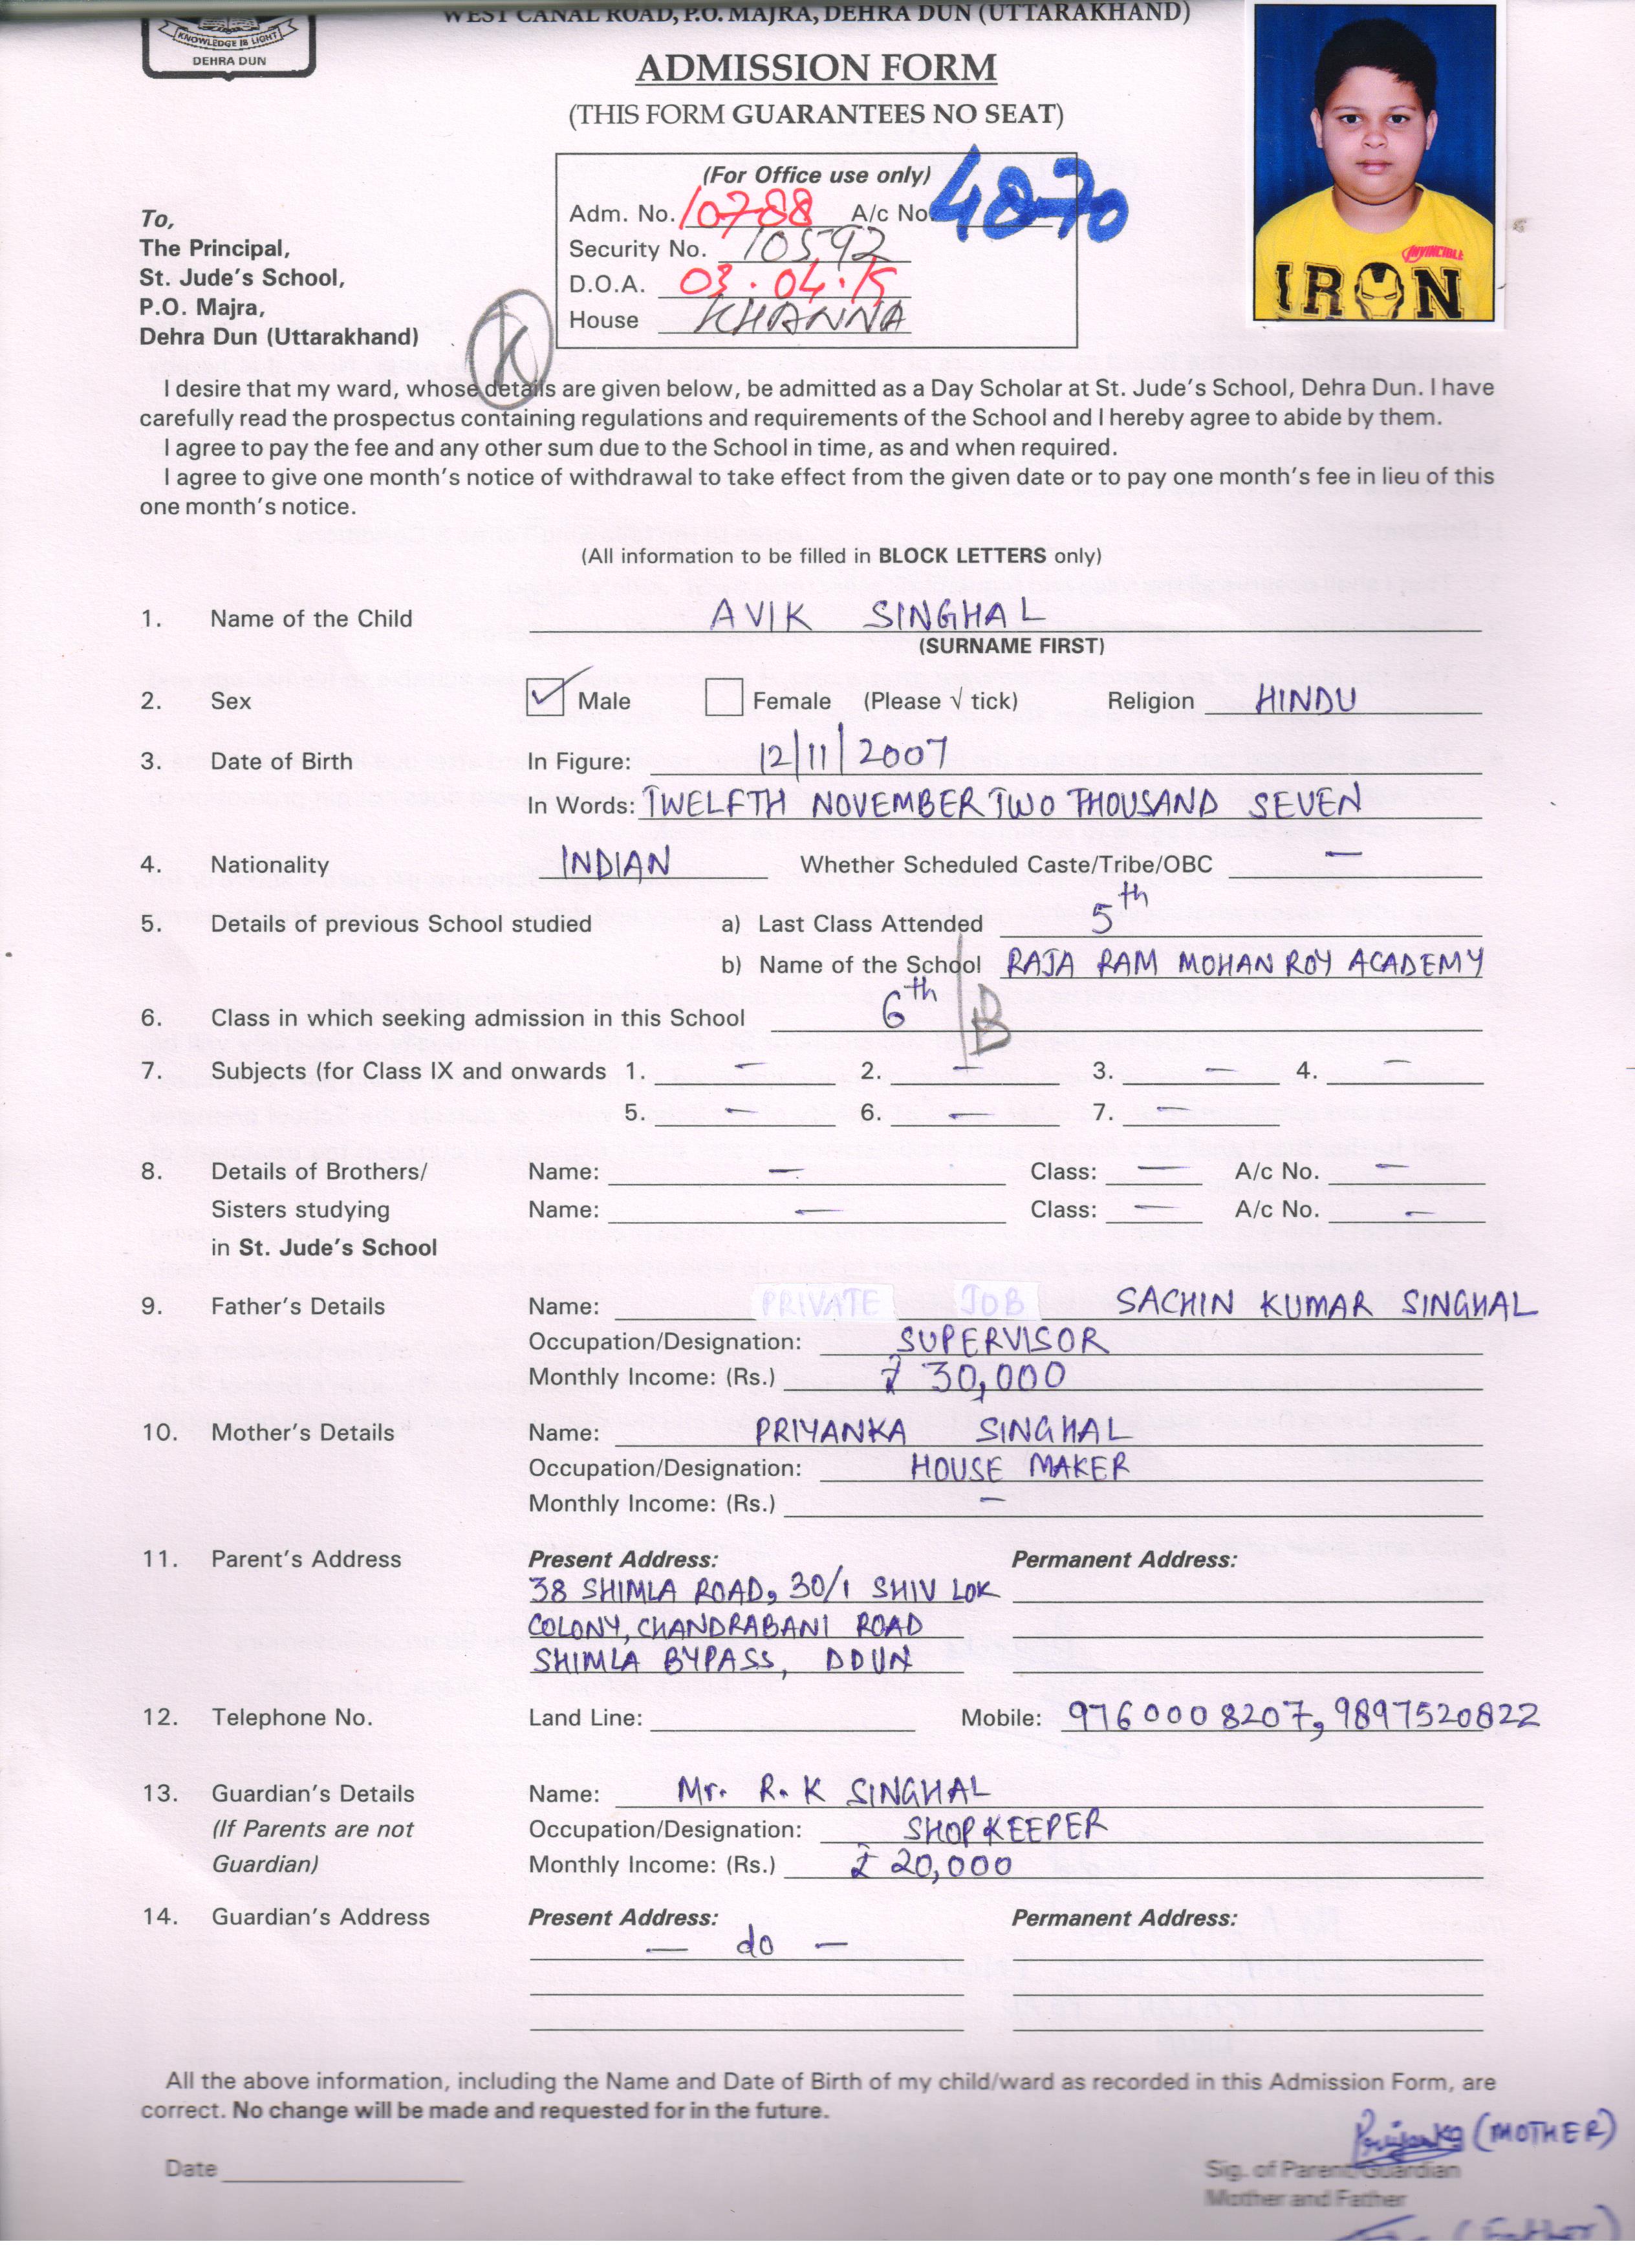 WEST CANAL ROAD, P.O. MAJRA, DEHRA DUN (UTTARAKHAND)
KNOWLEDGE IS LIGHT
DEHRA DUN
ADMISSION FORM
(THIS FORM GUARANTEES NO SEAT)
(For Office use only)
Adm. No. 10788 A/c No. 4870
Security No. 10592
D.O.A. 03.04.15
House KHANNA
K
INVINCIBLE
IRON
To,
The Principal,
St. Jude's School,
P.O. Majra,
Dehra Dun (Uttarakhand)
I desire that my ward, whose details are given below, be admitted as a Day Scholar at St. Jude's School, Dehra Dun. I have
carefully read the prospectus containing regulations and requirements of the School and I hereby agree to abide by them.
I agree to pay the fee and any other sum due to the School in time, as and when required.
I agree to give one month's notice of withdrawal to take effect from the given date or to pay one month's fee in lieu of this
one month's notice.
(All information to be filled in BLOCK LETTERS only)
1. Name of the Child AVIK SINGHAL
(SURNAME FIRST)
2. Sex ✓ Male Female (Please √ tick) Religion HINDU
3. Date of Birth In Figure: 12/11/2007
In Words: TWELFTH NOVEMBER TWO THOUSAND SEVEN
4. Nationality INDIAN Whether Scheduled Caste/Tribe/OBC —
5. Details of previous School studied a) Last Class Attended 5th
b) Name of the School RAJA RAM MOHAN ROY ACADEMY
6. Class in which seeking admission in this School 6th B
7. Subjects (for Class IX and onwards 1. — 2. — 3. — 4. —
5. — 6. — 7. —
8. Details of Brothers/ Name: — Class: — A/c No. —
Sisters studying Name: — Class: — A/c No. —
in St. Jude's School
9. Father's Details Name: PRIVATE JOB SACHIN KUMAR SINGHAL
Occupation/Designation: SUPERVISOR
Monthly Income: (Rs.) ₹ 30,000
10. Mother's Details Name: PRIYANKA SINGHAL
Occupation/Designation: HOUSE MAKER
Monthly Income: (Rs.) —
11. Parent's Address Present Address: Permanent Address:
38 SHIMLA ROAD, 30/1 SHIV LOK
COLONY, CHANDRABANI ROAD
SHIMLA BYPASS, DDUN
12. Telephone No. Land Line: Mobile: 9760008207, 9897520822
13. Guardian's Details Name: Mr. R. K SINGHAL
(If Parents are not Occupation/Designation: SHOPKEEPER
Guardian) Monthly Income: (Rs.) ₹ 20,000
14. Guardian's Address Present Address: Permanent Address:
— do —
All the above information, including the Name and Date of Birth of my child/ward as recorded in this Admission Form, are
correct. No change will be made and requested for in the future.
Priyanka (MOTHER)
Date Sig. of Parent/Guardian
Mother and Father
(Father)